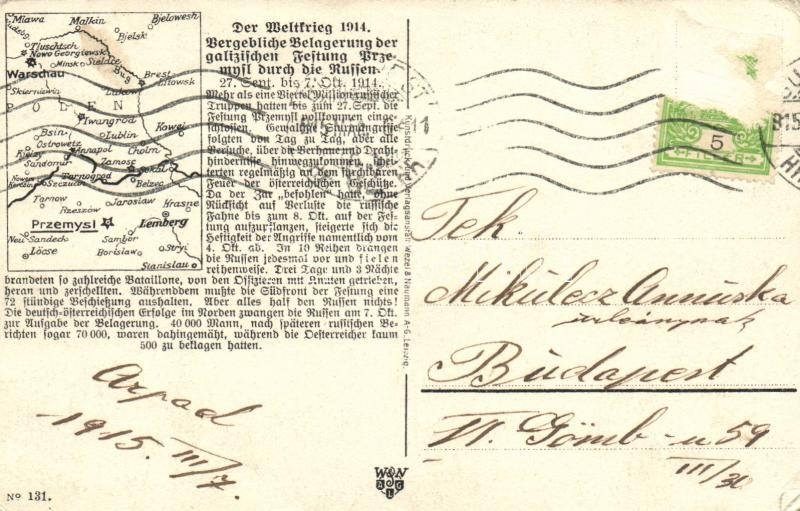 Mlawa
Malkin
Bjelowesh
Bjelsk
Tluschtsch
Nowo Georgiewsk
Minsk
Siedlce
Bug
Warschau
Skierniewin
Brest Litowsk
Lukow
POLEN
Iwangrod
Lublin
Kowel
Bsin
Ostrowetz
Cholm
Kielzy
Annapol
Sandomir
Zamosc
Sokal
Tarnogrod
Szczuan
Belzec
Tarnow
Jaroslaw
Rzeszów
Hrasne
Przemysl
Lemberg
Neu Sandeck
Sambór
Stryj
Löcse
Borislaw
Stanislau
Der Weltkrieg 1914.
Vergebliche Belagerung der
galizischen Festung Prze-
mysl durch die Russen.
27. Sept. bis 7. Okt. 1914.
Mehr als eine Viertel Million russischer
Truppen hatten bis zum 27. Sept. die
Festung Przemysl vollkommen einge-
schlossen. Gewaltige Sturmangriffe
folgten den Tag zu Tag, aber alle
Versuche, über die Verhaue und Draht-
hindernisse hinwegzukommen, schei-
terten regelmäßig an dem furchtbaren
Feuer der österreichischen Geschütze.
Da der Zar „befohlen“ hatte, ohne
Rücksicht auf Verluste die russische
Fahne bis zum 8. Okt. auf der Fes-
tung aufzupflanzen, steigerte sich die
Heftigkeit der Angriffe namentlich vom
4. Okt. ab. In 10 Reihen drangen
die Russen jedesmal vor und fielen
reihenweise. Drei Tage und 3 Nächte
brandeten so zahlreiche Bataillone, von den Offizieren mit Knuten getrieben,
heran und zerschellten. Währenddem mußte die Südfront der Festung eine
72 stündige Beschießung aushalten. Aber alles half den Russen nichts!
Die deutsch-österreichischen Erfolge im Norden zwangen die Russen am 7. Okt.
zur Aufgabe der Belagerung. 40 000 Mann, nach späteren russischen Be-
richten sogar 70 000, waren dahingemäht, während die Oesterreicher kaum
500 zu beklagen hatten.
Arpad
1915. III/7.
No 131.
Kunstdruck- und Verlagsanstalt Wezel & Naumann A.-G. Leipzig.
W&N
A G
L
5
FILLÉR
Tek.
Mikulecz Annuska
urleánynak
Budapest
VI. Gömb-u 59
III/30